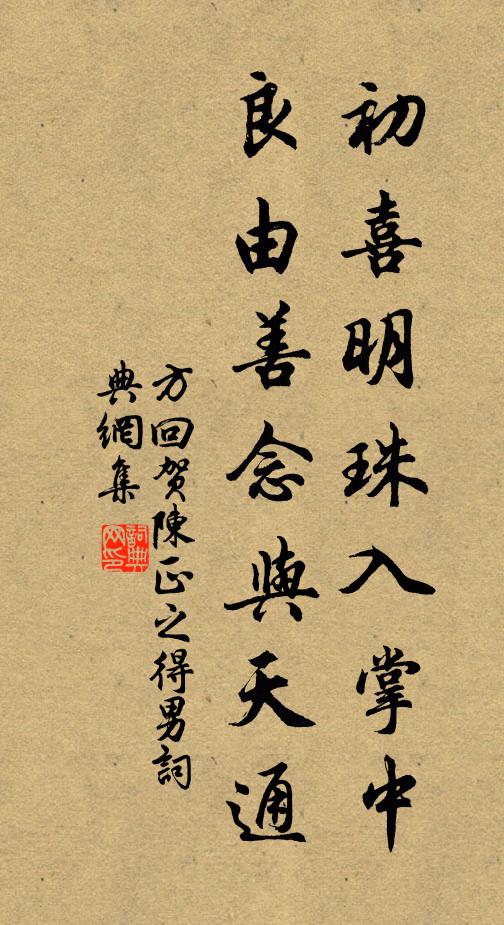 初喜明珠入掌中
良由善念與天通
方回賀陳正之得男詞
典網集
詞典
网印